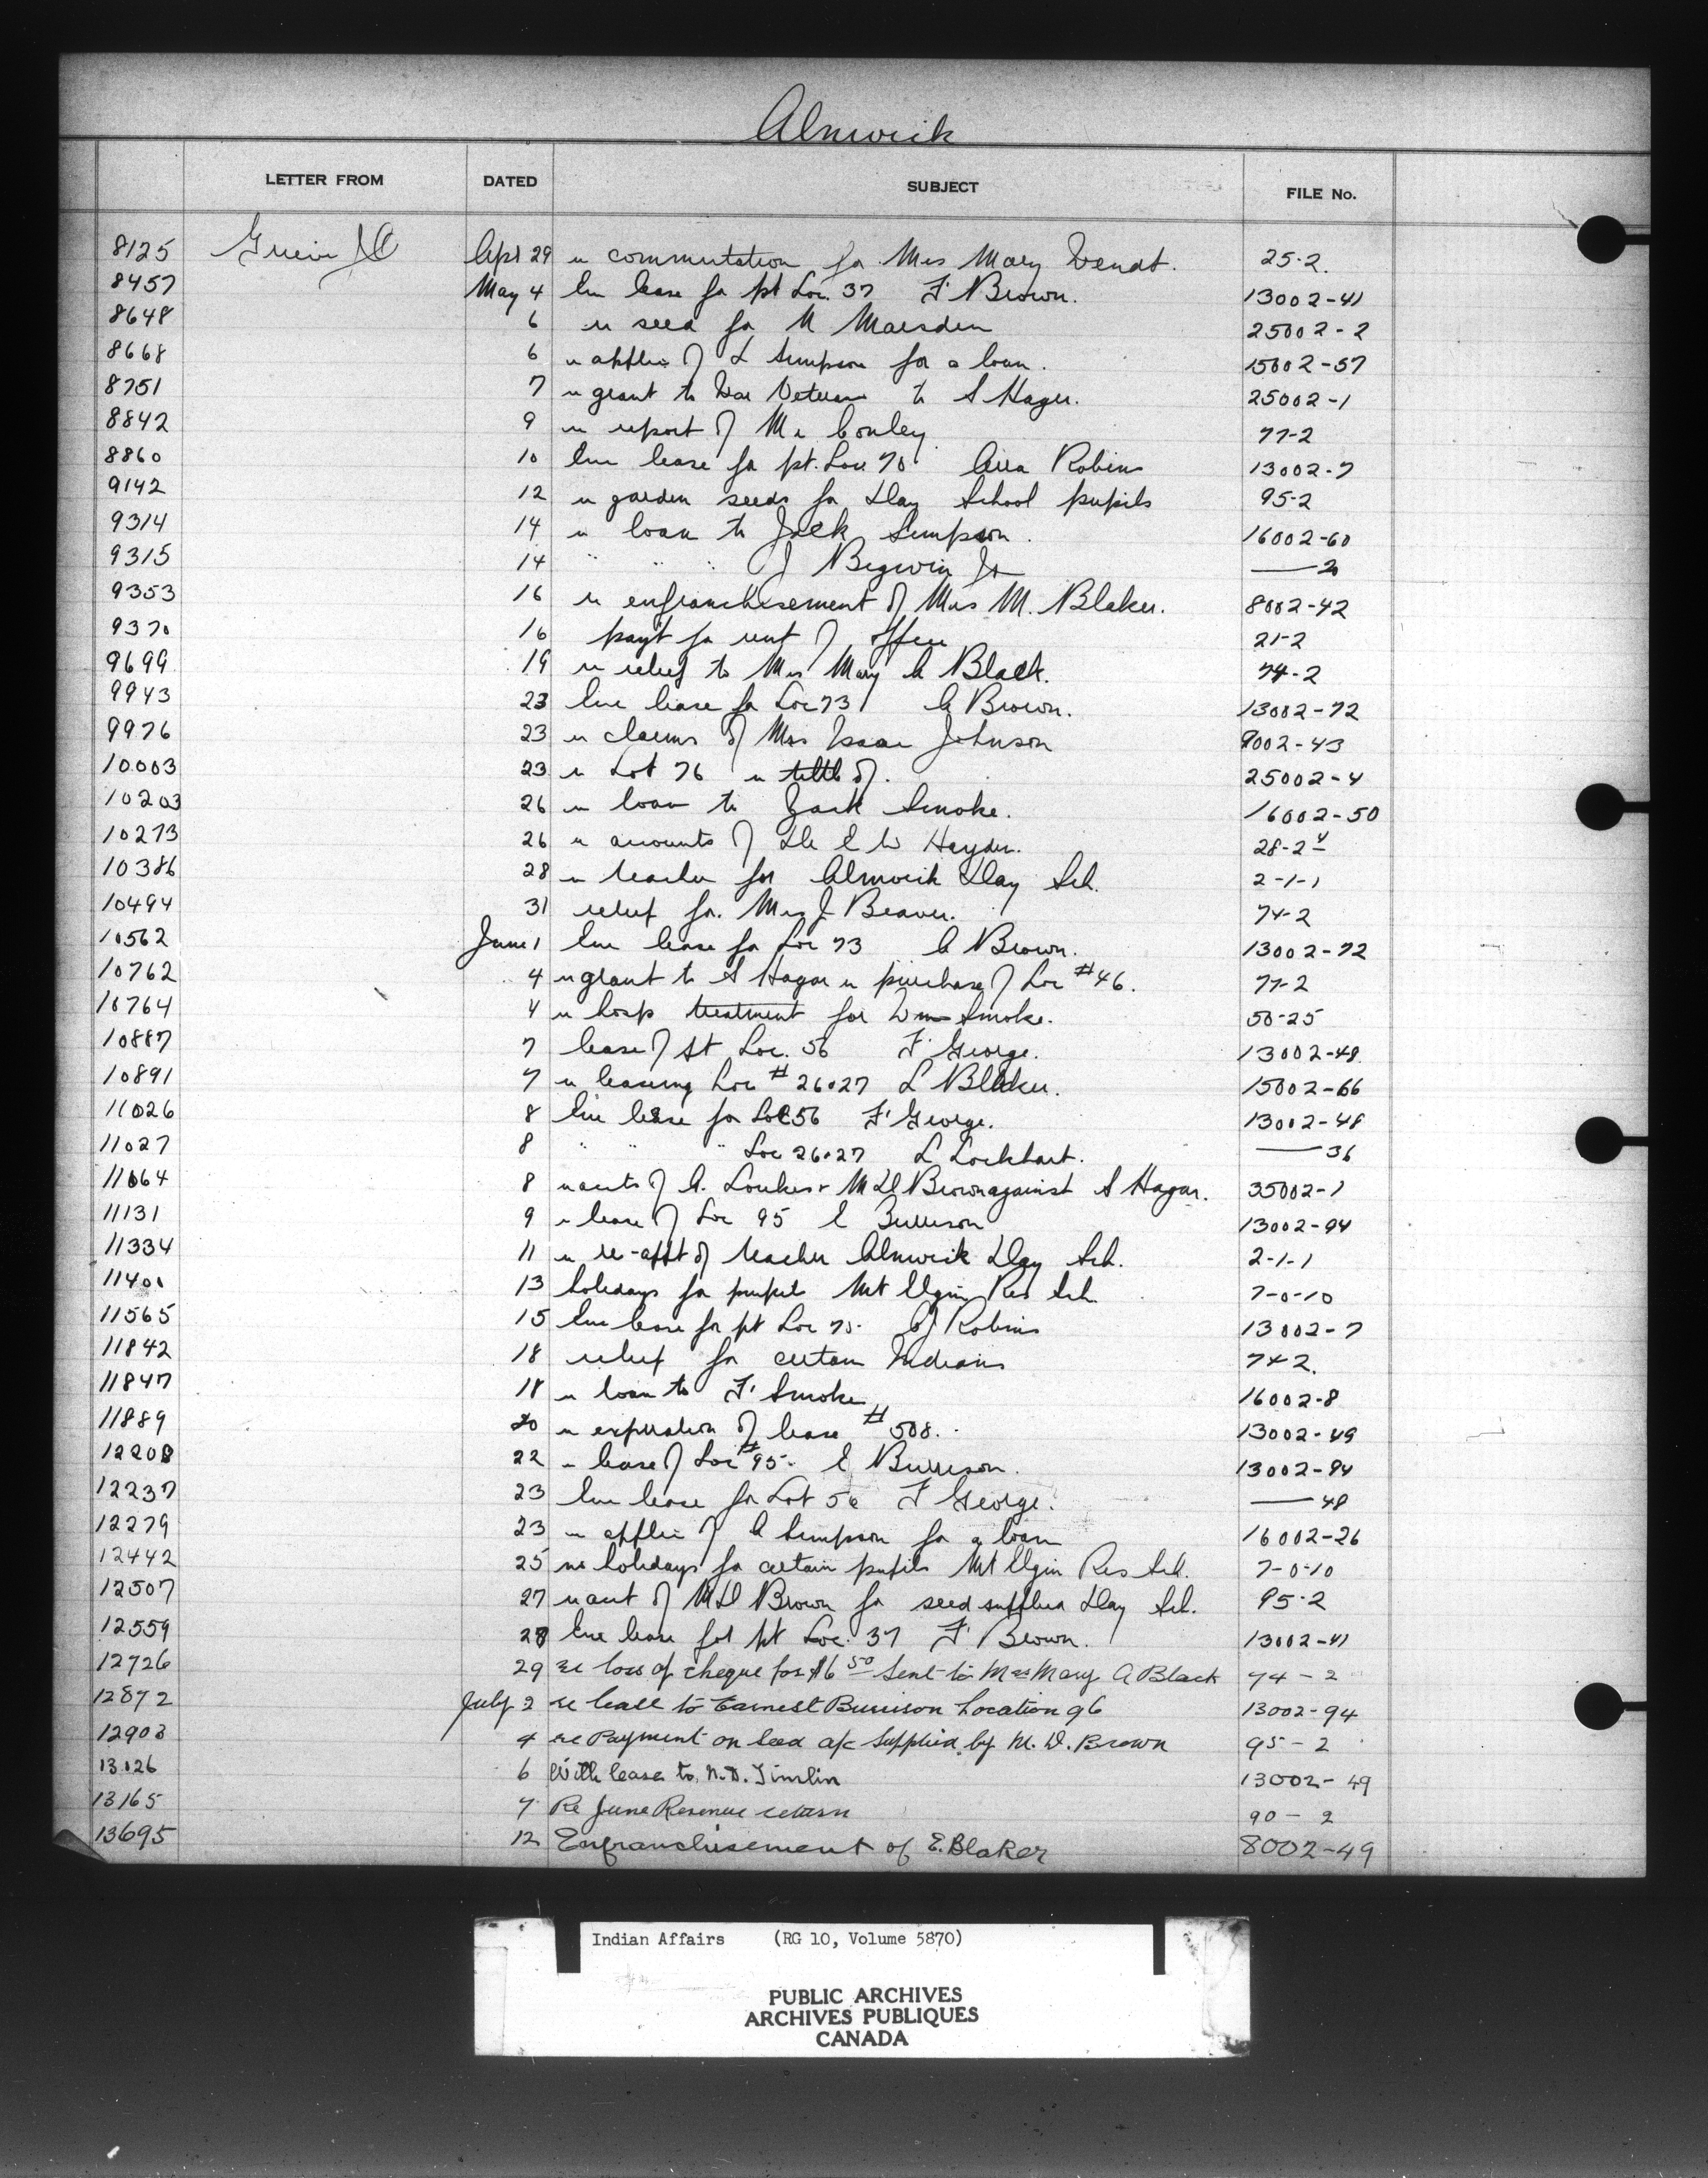 Alnwick
LETTER FROM DATED SUBJECT FILE No.
8125 Apl 29 re commutation for Mrs Mary Wendt. 25-2.
8457 May 4 lease for pt Loc. 37 F Brown. 13002-41
8648 6 re seed for M Marsden 25002-2
8668 6 re applic of L Simpson for a loan. 15002-57
8751 7 re grant to War Veteran to S Hager. 25002-1
8842 9 re report of Mr Conley 77-2
8860 10 lease for pt. Loc 70 Robins 13002-7
9142 12 re garden seeds for Day School pupils 95-2
9314 14 re loan to Jack Simpson. 16002-60
9315 14 " " " J Begwin Jr —— 2
9353 16 re enfranchisement of Mrs M. Blaker. 8002-42
9370 16 payt for rent of office 21-2
9699 19 re relief to Mrs Mary A Black. 74-2
9943 23 lease for Loc 73 A Brown. 13002-72
9976 23 re claims of Mrs Isaac Johnson 9002-43
10003 23 re Lot 76 re title of. 25002-4
10203 26 re loan to Zack Smoke. 16002-50
10273 26 re accounts of Dr E W Hayden. 28-2
10386 28 re teacher for Alnwick Day Sch. 2-1-1
10494 31 relief for. Mrs J Beaver. 74-2
10562 June 1 lease for Loc 73 A Brown. 13002-72
10762 4 re grant to S Hagar re purchase of Loc #46. 77-2
10764 4 re hosp treatment for Wm Smoke. 50-25
10887 7 lease of pt Loc. 56 F George. 13002-48
10891 7 re leasing Loc # 26.27 L Blaker. 15002-66
11026 8 lease for Loc 56 F George. 13002-48
11027 8 " " " Loc 26.27 L Lockhart. —— 36
11064 8 re accts of A. Loukes & M D Brown against S Hagar. 35002-1
11131 9 re lease of Loc 95 E Burrison 13002-94
11334 11 re re-appt of teacher Alnwick Day Sch. 2-1-1
11401 13 holidays for pupils Mt Elgin Res Sch 7-0-10
11565 15 lease for pt Loc 70. Robins 13002-7
11842 18 relief for certain Indians 74-2.
11847 18 re loan to F Smoke 16002-8
11889 20 re expiration of lease # 508. 13002-49
12208 22 re lease of Loc #95. E Burrison. 13002-94
12237 23 lease for Lot 56 F George. —— 48
12279 23 re applic of A Simpson for a loan 16002-26
12442 25 re holidays for certain pupils Mt Elgin Res Sch. 7-0-10
12507 27 re acct of M D Brown for seed supplied Day Sch. 95-2
12559 28 lease for pt Loc. 37 F Brown. 13002-41
12726 29 re loss of cheque for $6 50 sent to Mrs Mary A Black 74-2
12872 July 2 re lease to Earnest Burrison Location 96 13002-94
12903 4 re Payment on seed a/c supplied by M. D. Brown 95-2
13126 6 With lease to N.D. Timlin 13002-49
13165 7 Re June Revenue return 90-2
13695 12 Enfranchisement of E. Blaker 8002-49
Indian Affairs (RG 10, Volume 5870)
PUBLIC ARCHIVES
ARCHIVES PUBLIQUES
CANADA